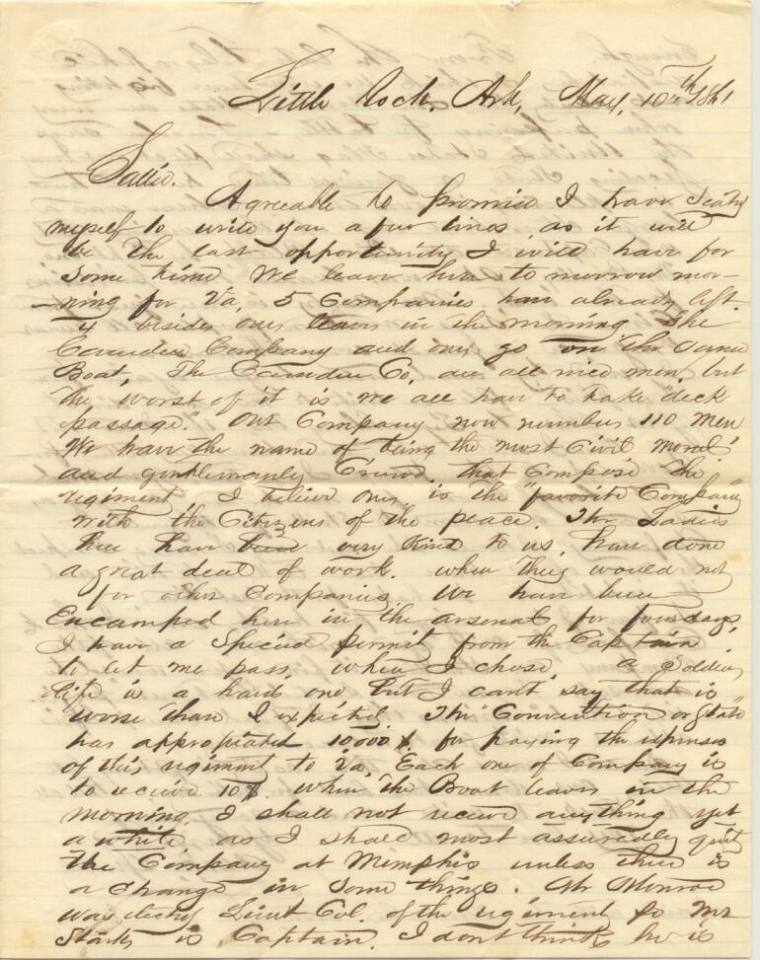 Little Rock, Ark, May, 10th 1861
Sallie.
Agreeable to promise I have Seated
myself to write you a few lines as it will
be the last opportunity I will have for
Some time We leave here to morrow mor-
ning for Va, 5 Companies have already left.
4 besides ours leaves in the morning The
Camden Company and ours go on the same
Boat, The Camden Co, are all nice men, but
the worst of it is we all have to take "deck
passage." Our Company now numbers 110 men
We have the name of being the most Civil moral
and gentlemanly Crowd that Compose the
regiment I believe ours is the "favorite Company"
with the Citizens of the place. The Ladies
here have been very kind to us, have done
a great deal of work. when they would not
for other Companies We have been
Encamped here in the arsenal for four days,
I have a Special permit from the Captain,
to let me pass, when I chose, a Soldiers
life is a hard one but I cant say that is
worse than I expected. The "Convention or State"
has appropiated 10,000 $ for paying the expenses
of this regiment to Va. Each one of Company is
to receive 10$ when the Boat leaves in the
morning, I shall not receive anything yet
a while, as I shall most assuredly quit
the Company at Memphis unless there is
a Change in Some things. Mr Monroe
was elected Lieut Col. of the regiment So Mr
Starks is Captain. I dont think he is